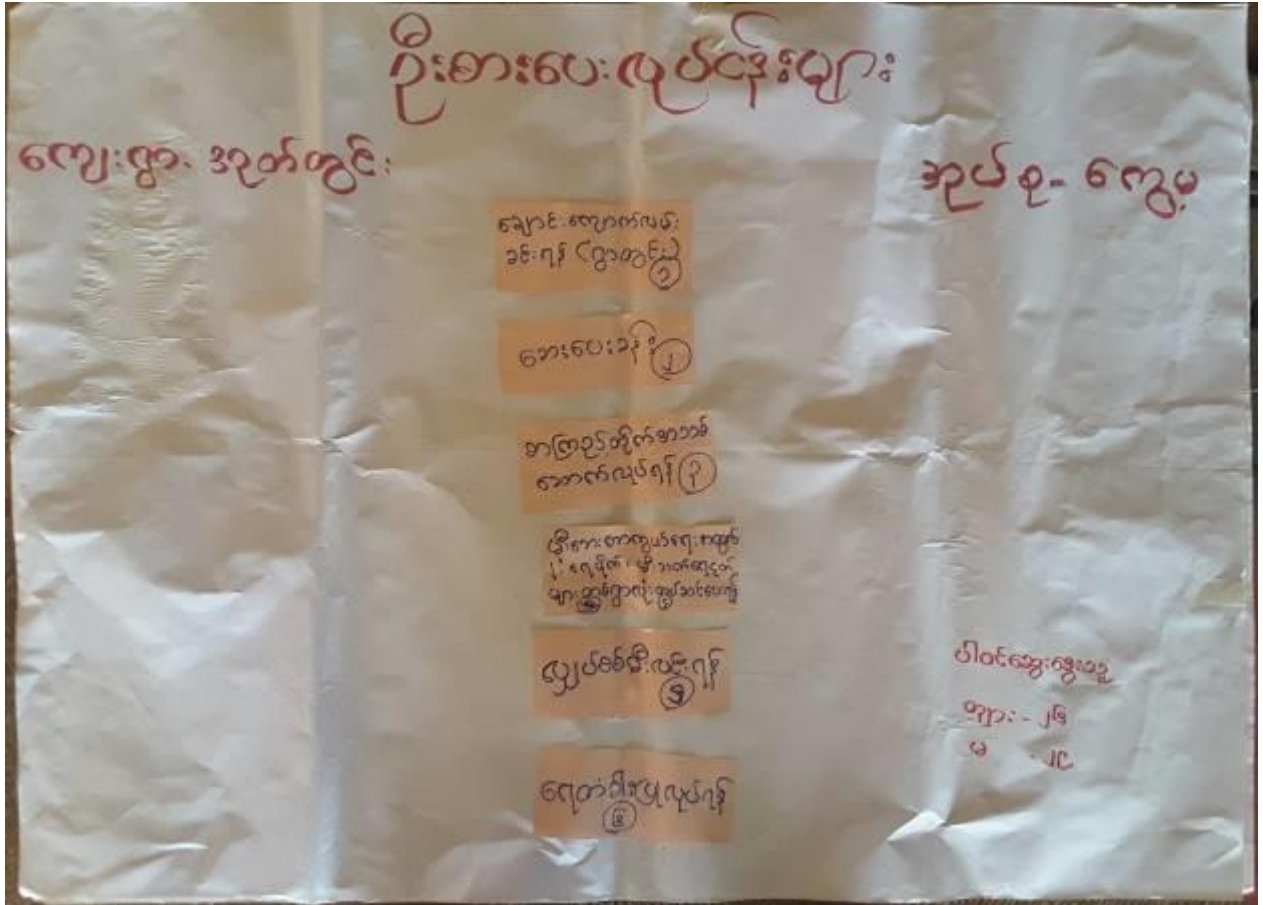 ဦးစားပေးလုပ်ငန်းများ
ကျေးရွာ- အုတ်တွင်း
အုပ်စု- ကွေ့မ
ချောင်းကျောက်လမ်း
ခင်းရန် (ရွာတွင်း) ၁
ဆေးပေးခန်း ၂
စာကြည့်တိုက်အသစ်
ဆောက်လုပ်ရန် ၃
မီးဘေးကာကွယ်ရေးအတွက်
မီးသတ်ရေငုတ်
များ
လျှပ်စစ်မီးလင်းရန် ၅
ရေတံခါးပြုလုပ်ရန်
၆
ပါဝင်ဆွေးနွေးသူ
ကျား - ၂၆
မ - ၂၉